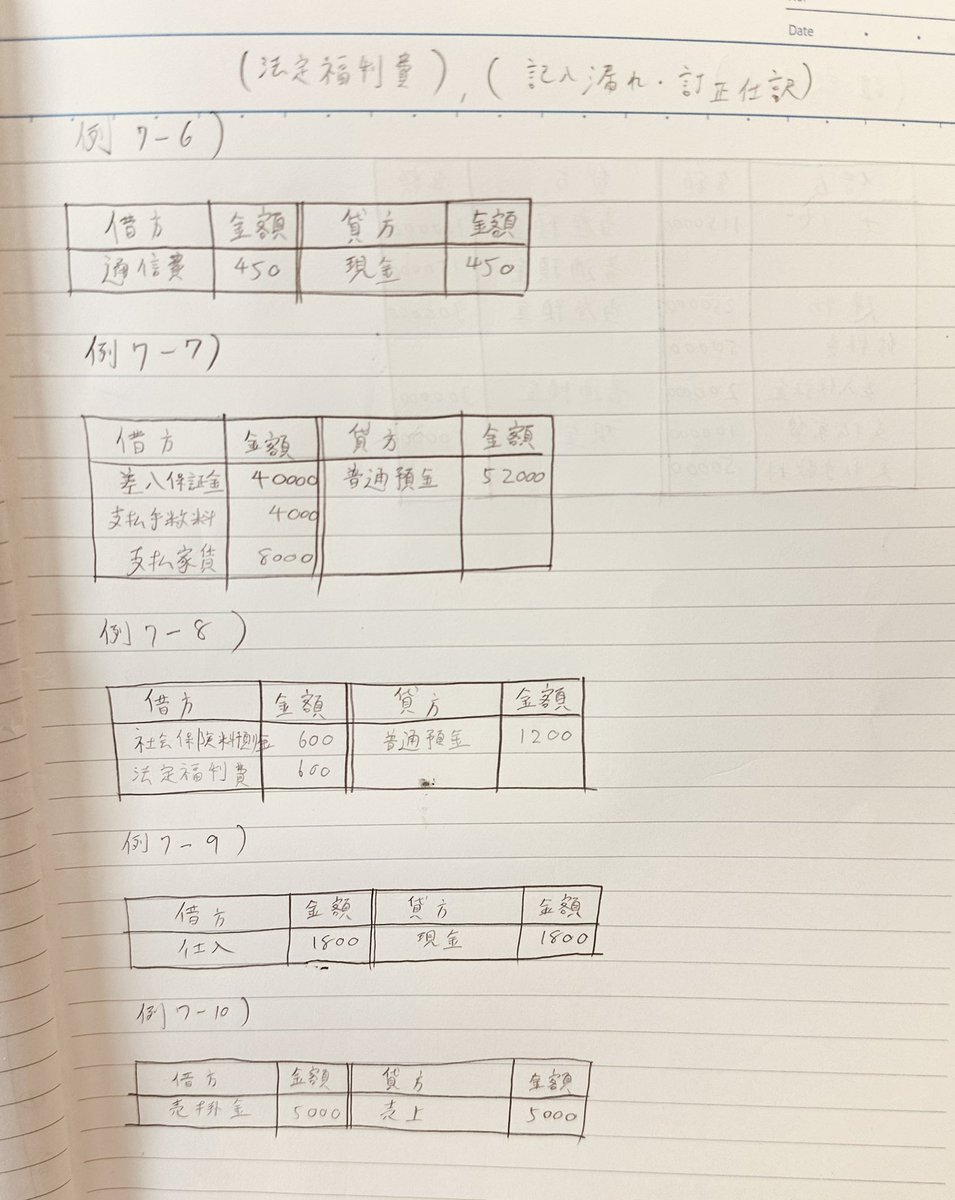 Date
(法定福利費), (記入漏れ・訂正仕訳)
例 7-6)
借方 金額 貸方 金額
通信費 450 現金 450
例 7-7)
借方 金額 貸方 金額
差入保証金 40000 普通預金 52000
支払手数料 4000
支払家賃 8000
例 7-8)
借方 金額 貸方 金額
社会保険料預り金 600 普通預金 1200
法定福利費 600
例 7-9)
借方 金額 貸方 金額
仕入 1800 現金 1800
例 7-10)
借方 金額 貸方 金額
売掛金 5000 売上 5000